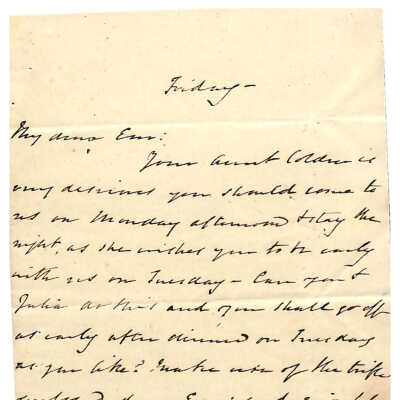 Friday -
My dear Em:
Your Aunt Coldren is
very desirous you should come to
us on Monday afternoon & stay the
night, as she wishes you to be early
with us on Tuesday - Can you &
Julia do this and you shall go off
as early after dinner on Tuesday
as you like? Make use of the trifle